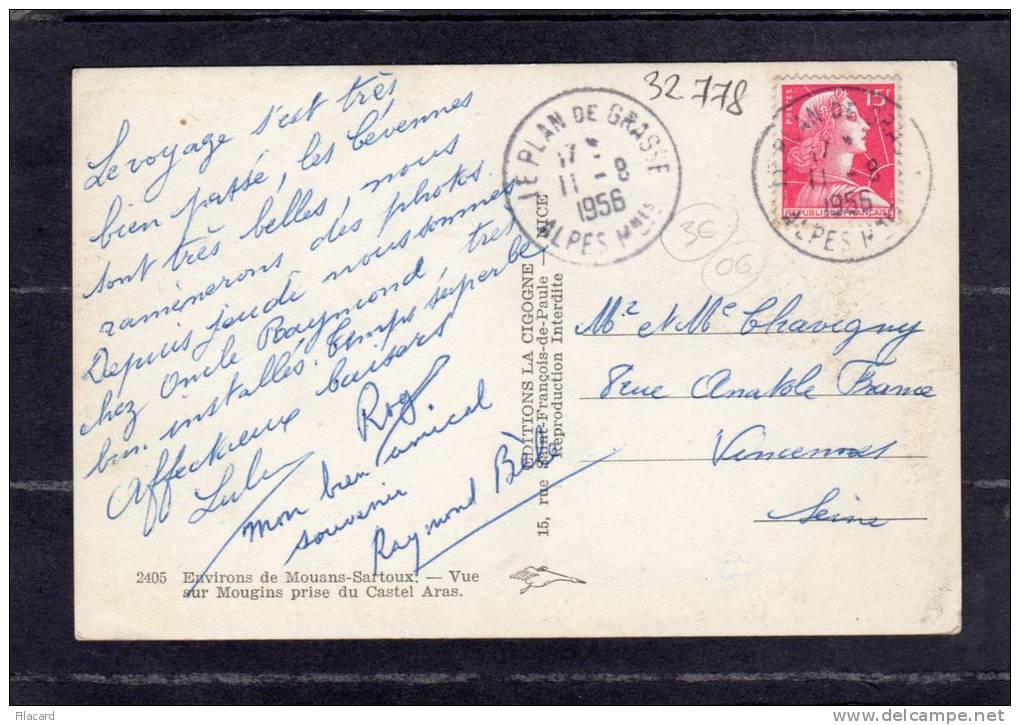 Le voyage s'est très
bien passé, les Cévennes
sont très belles, nous
ramènerons des photos.
Depuis jeudi nous sommes
chez Oncle Raymond très
bien installés. Temps superbe
Affectueux baisers
Lulu Rog
Mon bien amical
souvenir
Raymond
2405 Environs de Mouans-Sartoux. — Vue
sur Mougins prise du Castel Aras.
EDITIONS LA CIGOGNE
15, rue Saint-François-de-Paule — NICE
Reproduction Interdite
32778
LE PLAN DE GRASSE
17 -
11 - 8
1956
ALPES Mmes
36
06
POSTES
15F
REPUBLIQUE FRANÇAISE
LE PLAN DE
17 -
11 - 8
1956
ALPES M
Mr et Me Chavigny
8 rue Anatole France
Vincennes
Seine
Filacard
www.delcampe.net